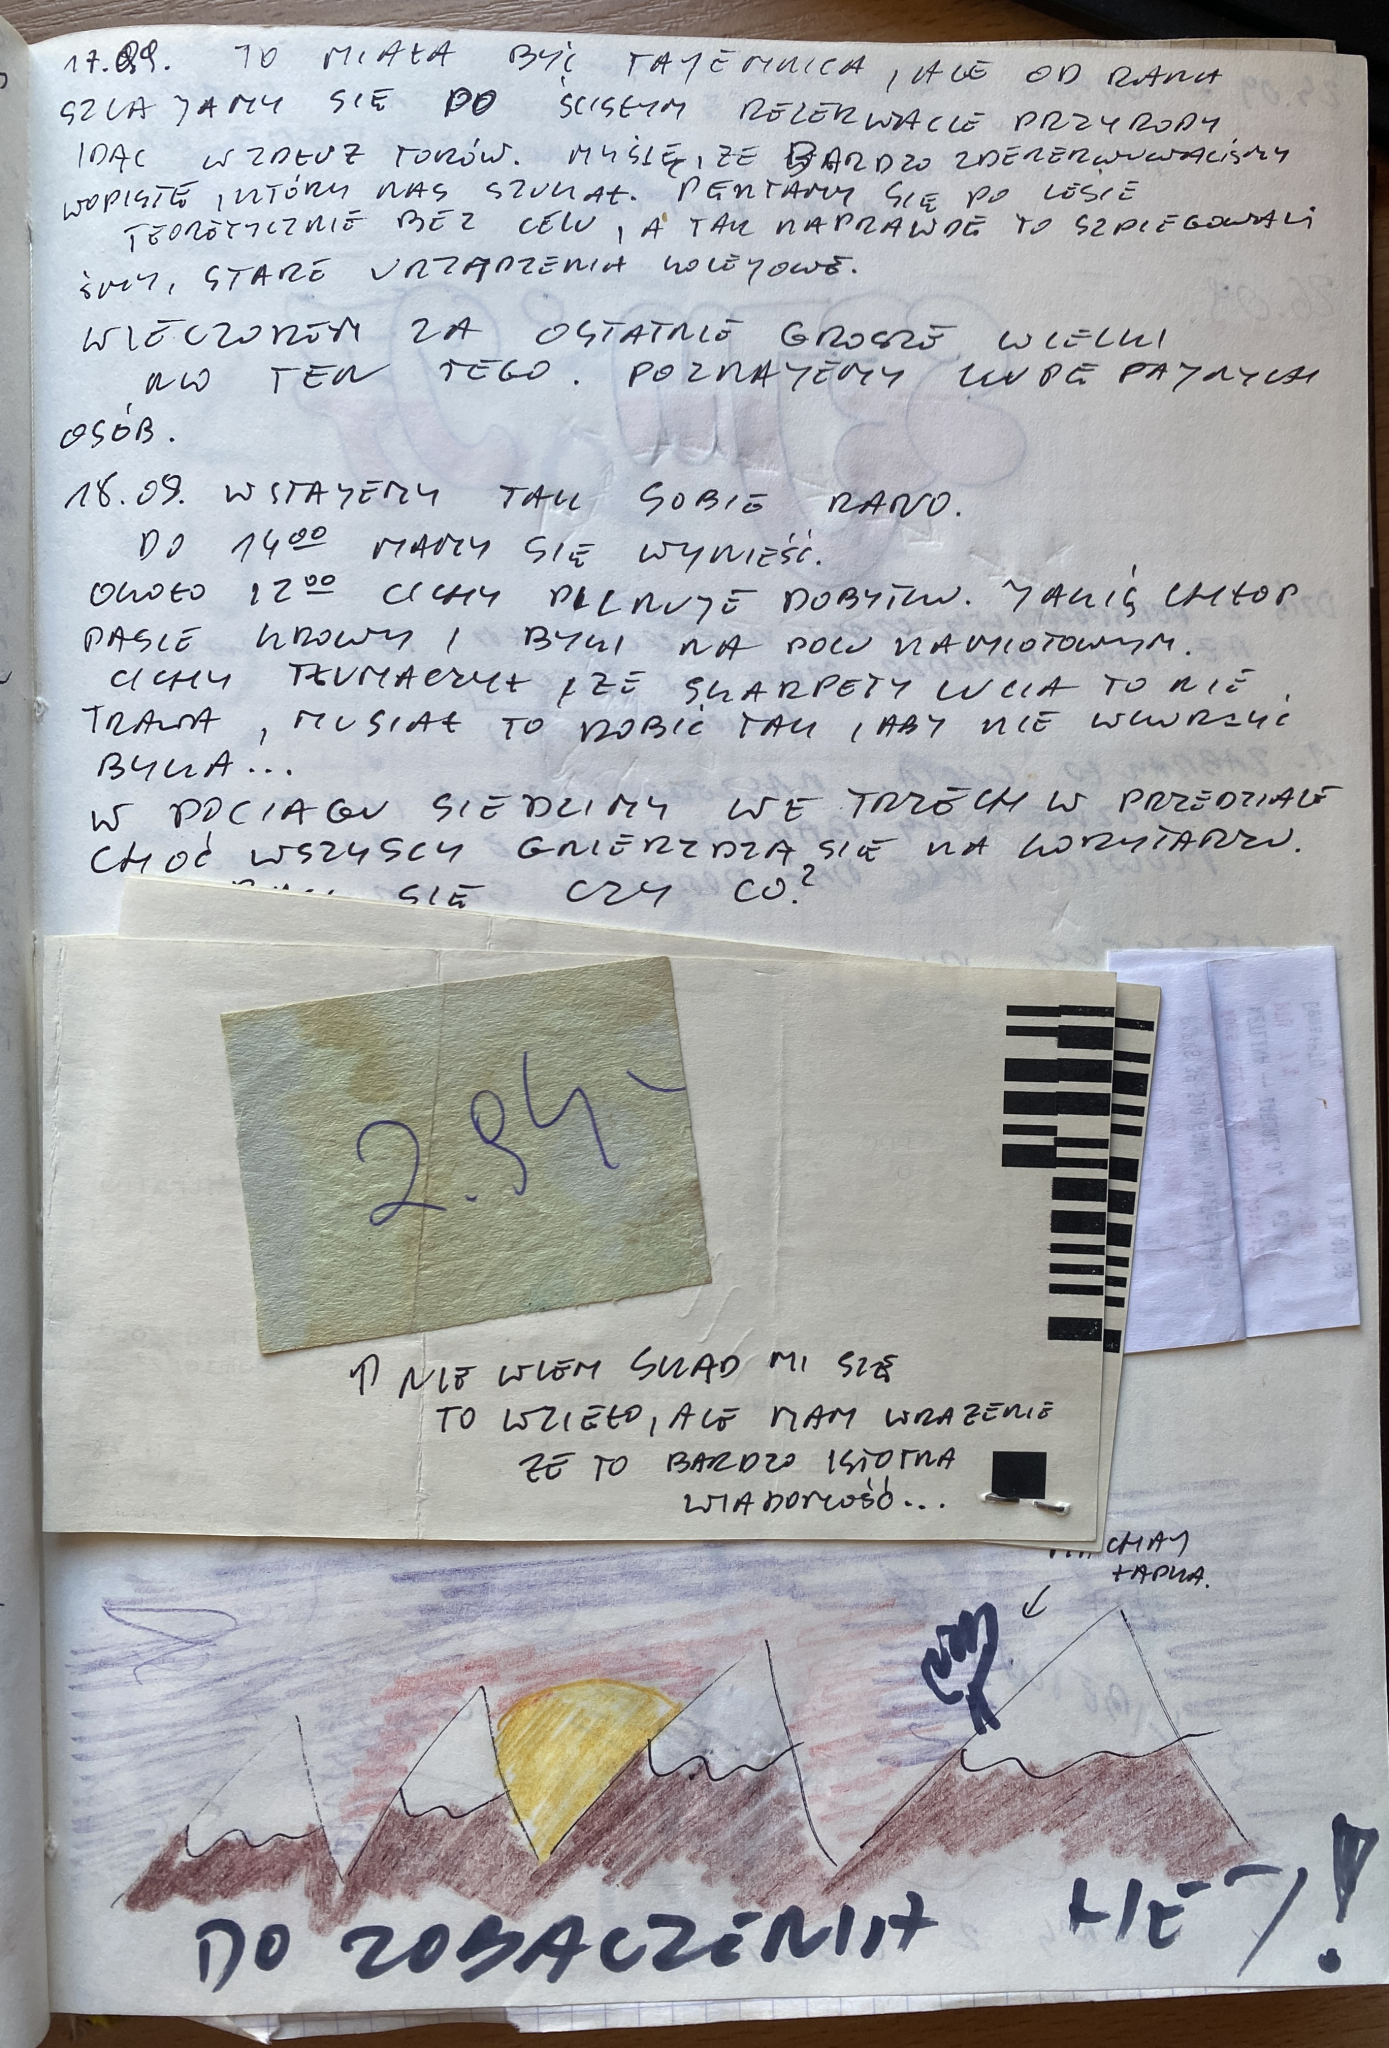 17.09. TO MIAŁA BYĆ TAJEMNICA, ALE OD RANA
SZLAJAMY SIĘ PO ŚCISŁYM REZERWACIE PRZYRODY
IDĄC WZDŁUŻ TORÓW. MYŚLĘ, ŻE BARDZO ZDENERWOWALIŚMY
WOPISTĘ, KTÓRY NAS SZUKAŁ. PĘTAMY SIĘ PO LESIE
TEORETYCZNIE BEZ CELU, A TAK NAPRAWDĘ TO SZPIEGOWALI
ŚMY, STARE URZĄDZENIA KOLEJOWE.
WIECZOREM ZA OSTATNIE GROSZE WIELKI
NO TEN TEGO. POZNAJEMY KUPĘ FAJNYCH
OSÓB.
18.09. WSTAJEMY TAK SOBIE RANO.
DO 14⁰⁰ MAMY SIĘ WYNIEŚĆ.
OKOŁO 12⁰⁰ CICHY PILNUJE DOBYTKU. JAKIŚ CHŁOP
PASIE KROWY I BYKI NA POLU NAMIOTOWYM.
CICHY TŁUMACZYŁ, ŻE SKARPETY LUCIA TO NIE
TRAWA, MUSIAŁ TO ROBIĆ TAK, ABY NIE WKURZYĆ
BYKA...
W POCIĄGU SIEDZIMY WE TRZECH W PRZEDZIALE
CHOĆ WSZYSCY GNIEŻDŻĄ SIĘ NA KORYTARZU.
SIĘ CZY CO?
2.94-
↑ NIE WIEM SKĄD MI SIĘ
TO WZIĘŁO, ALE MAM WRAŻENIE
ŻE TO BARDZO ISTOTNA
WIADOMOŚĆ...
ŁAPKA.
DO ZOBACZENIA !